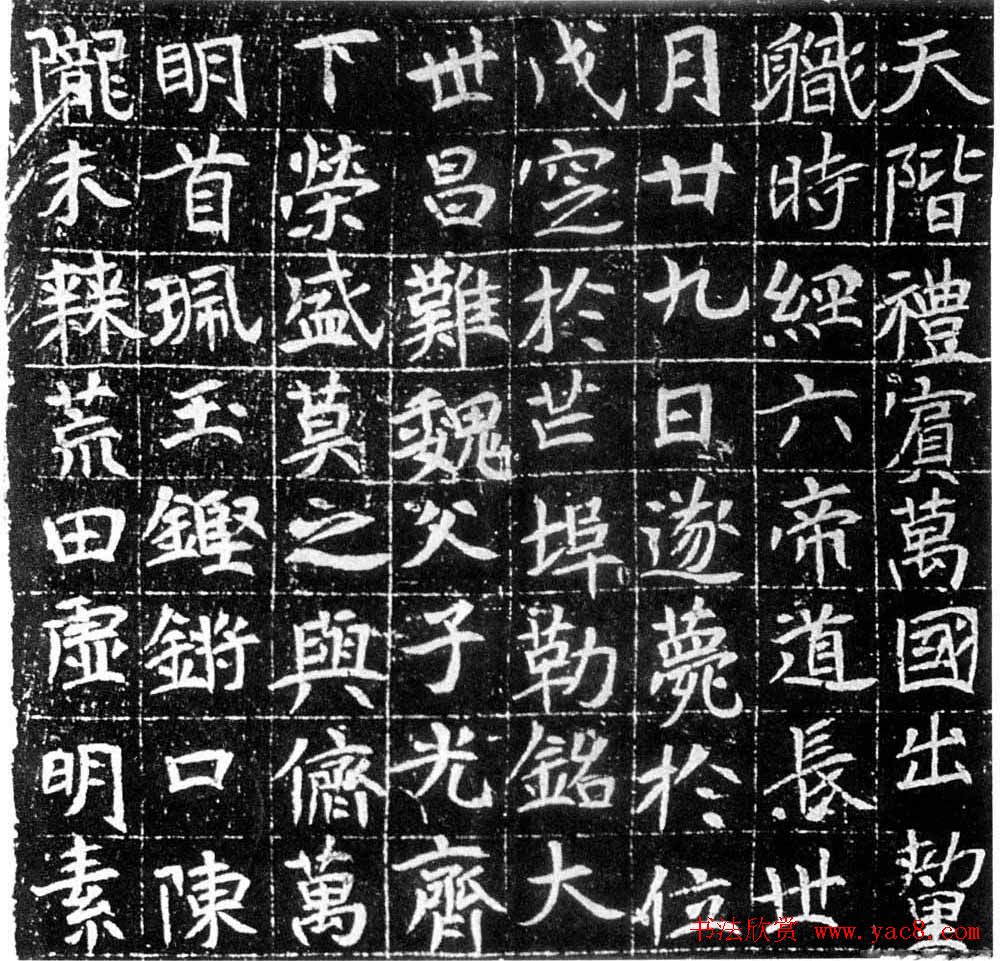 天階禮賓萬國出釐
職時經六帝道長世
月廿九日遂薨於位
戊窆於芒埠勒銘大
世昌難魏父子光齊
下榮盛莫之與儕萬
明首珮玉鏗鏘口陳
隴未棘荒田虛明素
书法欣赏 www.yac8.com